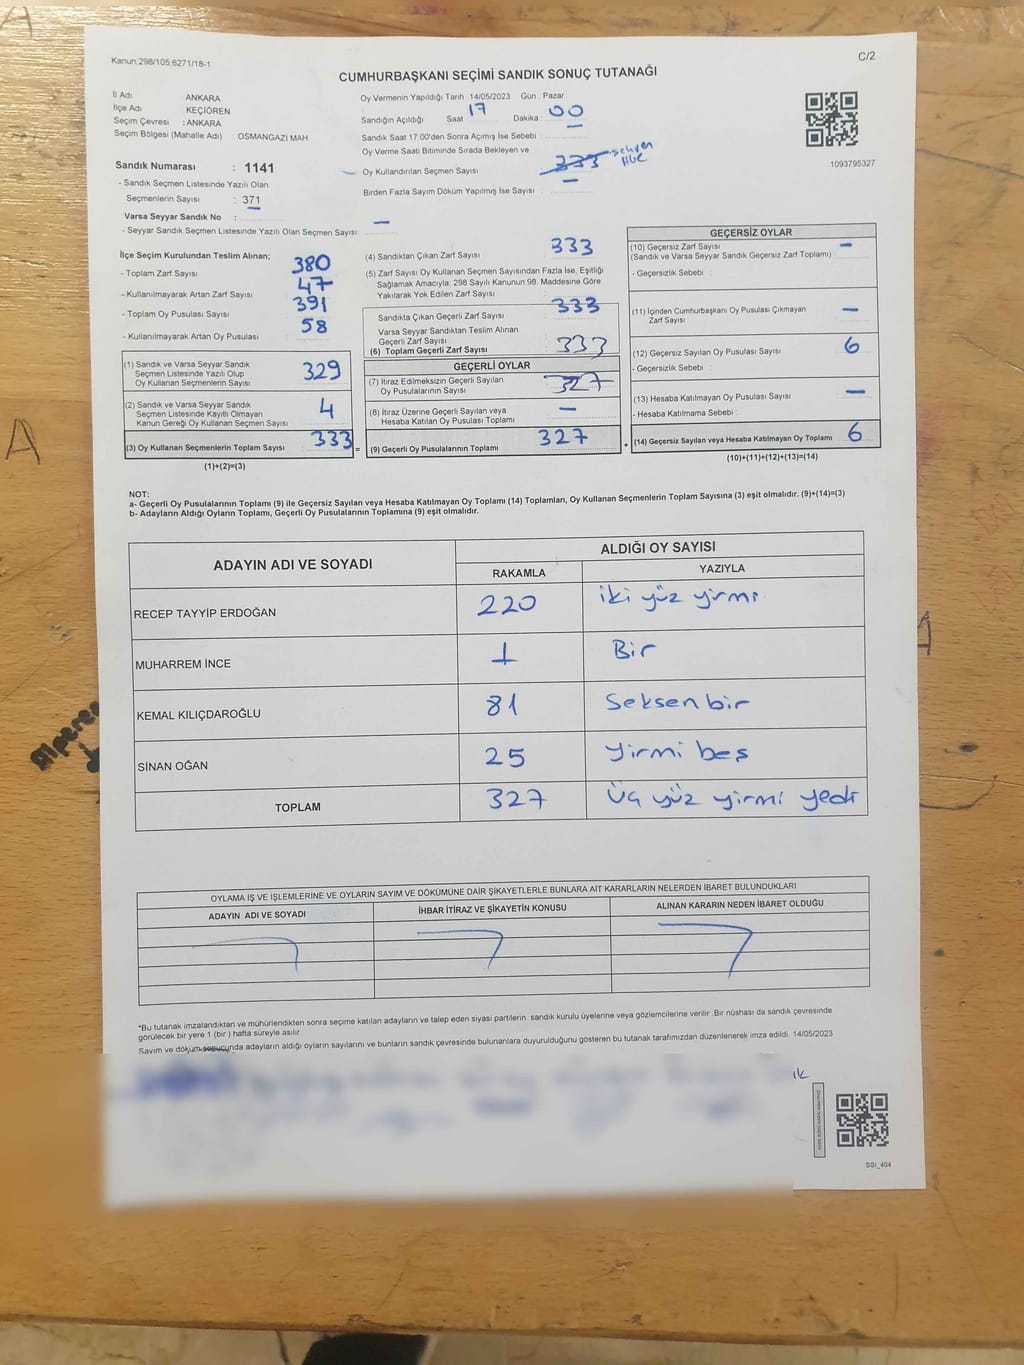 Kanun:298/105;6271/18-1
C/2
CUMHURBAŞKANI SEÇİMİ SANDIK SONUÇ TUTANAĞI
İl Adı ANKARA
İlçe Adı KEÇİÖREN
Seçim Çevresi : ANKARA
Seçim Bölgesi (Mahalle Adı) : OSMANGAZİ MAH.
Sandık Numarası : 1141
- Sandık Seçmen Listesinde Yazılı Olan
Seçmenlerin Sayısı : 371
Varsa Seyyar Sandık No :
- Seyyar Sandık Seçmen Listesinde Yazılı Olan Seçmen Sayısı : –
Oy Vermenin Yapıldığı Tarih 14/05/2023 Gün : Pazar
Sandığın Açıldığı Saat 17 Dakika : 00
Sandık Saat 17:00'den Sonra Açımış İse Sebebi
Oy Verme Saati Bitiminde Sırada Bekleyen ve
Oy Kullandırılan Seçmen Sayısı : 333 sehven
–
Birden Fazla Sayım Döküm Yapılmış İse Sayısı :
1093795327
İlçe Seçim Kurulundan Teslim Alınan;
- Toplam Zarf Sayısı 380
- Kullanılmayarak Artan Zarf Sayısı 47
- Toplam Oy Pusulası Sayısı 391
- Kullanılmayarak Artan Oy Pusulası 58
(1) Sandık ve Varsa Seyyar Sandık
Seçmen Listesinde Yazılı Olup
Oy Kullanan Seçmenlerin Sayısı 329
(2) Sandık ve Varsa Seyyar Sandık
Seçmen Listesinde Kayıtlı Olmayan
Kanun Gereği Oy Kullanan Seçmen Sayısı 4
(3) Oy Kullanan Seçmenlerin Toplam Sayısı 333 =
(1)+(2)=(3)
(4) Sandıktan Çıkan Zarf Sayısı 333
(5) Zarf Sayısı Oy Kullanan Seçmen Sayısından Fazla İse, Eşitliği
Sağlamak Amacıyla, 298 Sayılı Kanunun 98. Maddesine Göre
Yakılarak Yok Edilen Zarf Sayısı
Sandıkta Çıkan Geçerli Zarf Sayısı 333
Varsa Seyyar Sandıktan Teslim Alınan
Geçerli Zarf Sayısı
(6) Toplam Geçerli Zarf Sayısı 333
GEÇERLİ OYLAR
(7) İtiraz Edilmeksizin Geçerli Sayılan
Oy Pusulalarının Sayısı 327
(8) İtiraz Üzerine Geçerli Sayılan veya
Hesaba Katılan Oy Pusulası Toplamı –
(9) Geçerli Oy Pusulalarının Toplamı 327 +
GEÇERSİZ OYLAR
(10) Geçersiz Zarf Sayısı –
(Sandık ve Varsa Seyyar Sandık Geçersiz Zarf Toplamı)
- Geçersizlik Sebebi :
(11) İçinden Cumhurbaşkanı Oy Pusulası Çıkmayan
Zarf Sayısı –
(12) Geçersiz Sayılan Oy Pusulası Sayısı 6
- Geçersizlik Sebebi :
(13) Hesaba Katılmayan Oy Pusulası Sayısı –
- Hesaba Katılmama Sebebi :
(14) Geçersiz Sayılan veya Hesaba Katılmayan Oy Toplamı 6
(10)+(11)+(12)+(13)=(14)
NOT:
a- Geçerli Oy Pusulalarının Toplamı (9) ile Geçersiz Sayılan veya Hesaba Katılmayan Oy Toplamı (14) Toplamları, Oy Kullanan Seçmenlerin Toplam Sayısına (3) eşit olmalıdır. (9)+(14)=(3)
b- Adayların Aldığı Oyların Toplamı, Geçerli Oy Pusulalarının Toplamına (9) eşit olmalıdır.
ADAYIN ADI VE SOYADI ALDIĞI OY SAYISI
RAKAMLA YAZIYLA
RECEP TAYYİP ERDOĞAN 220 iki yüz yirmi
MUHARREM İNCE 1 Bir
KEMAL KILIÇDAROĞLU 81 Seksen bir
SİNAN OĞAN 25 yirmi beş
TOPLAM 327 Üç yüz yirmi yedi
OYLAMA İŞ VE İŞLEMLERİNE VE OYLARIN SAYIM VE DÖKÜMÜNE DAİR ŞİKAYETLERLE BUNLARA AİT KARARLARIN NELERDEN İBARET BULUNDUKLARI
ADAYIN ADI VE SOYADI İHBAR İTİRAZ VE ŞİKAYETİN KONUSU ALINAN KARARIN NEDEN İBARET OLDUĞU
*Bu tutanak imzalandıktan ve mühürlendikten sonra seçime katılan adayların ve talep eden siyasi partilerin sandık kurulu üyelerine veya gözlemcilerine verilir. Bir nüshası da sandık çevresinde
görülecek bir yere 1 (bir ) hafta süreyle asılır.
Sayım ve döküm sonucunda adayların aldığı oyların sayılarını ve bunların sandık çevresinde bulunanlara duyurulduğunu gösteren bu tutanak tarafımızdan düzenlenerek imza edildi. 14/05/2023
ik
SSI_404
A
A
Alperen